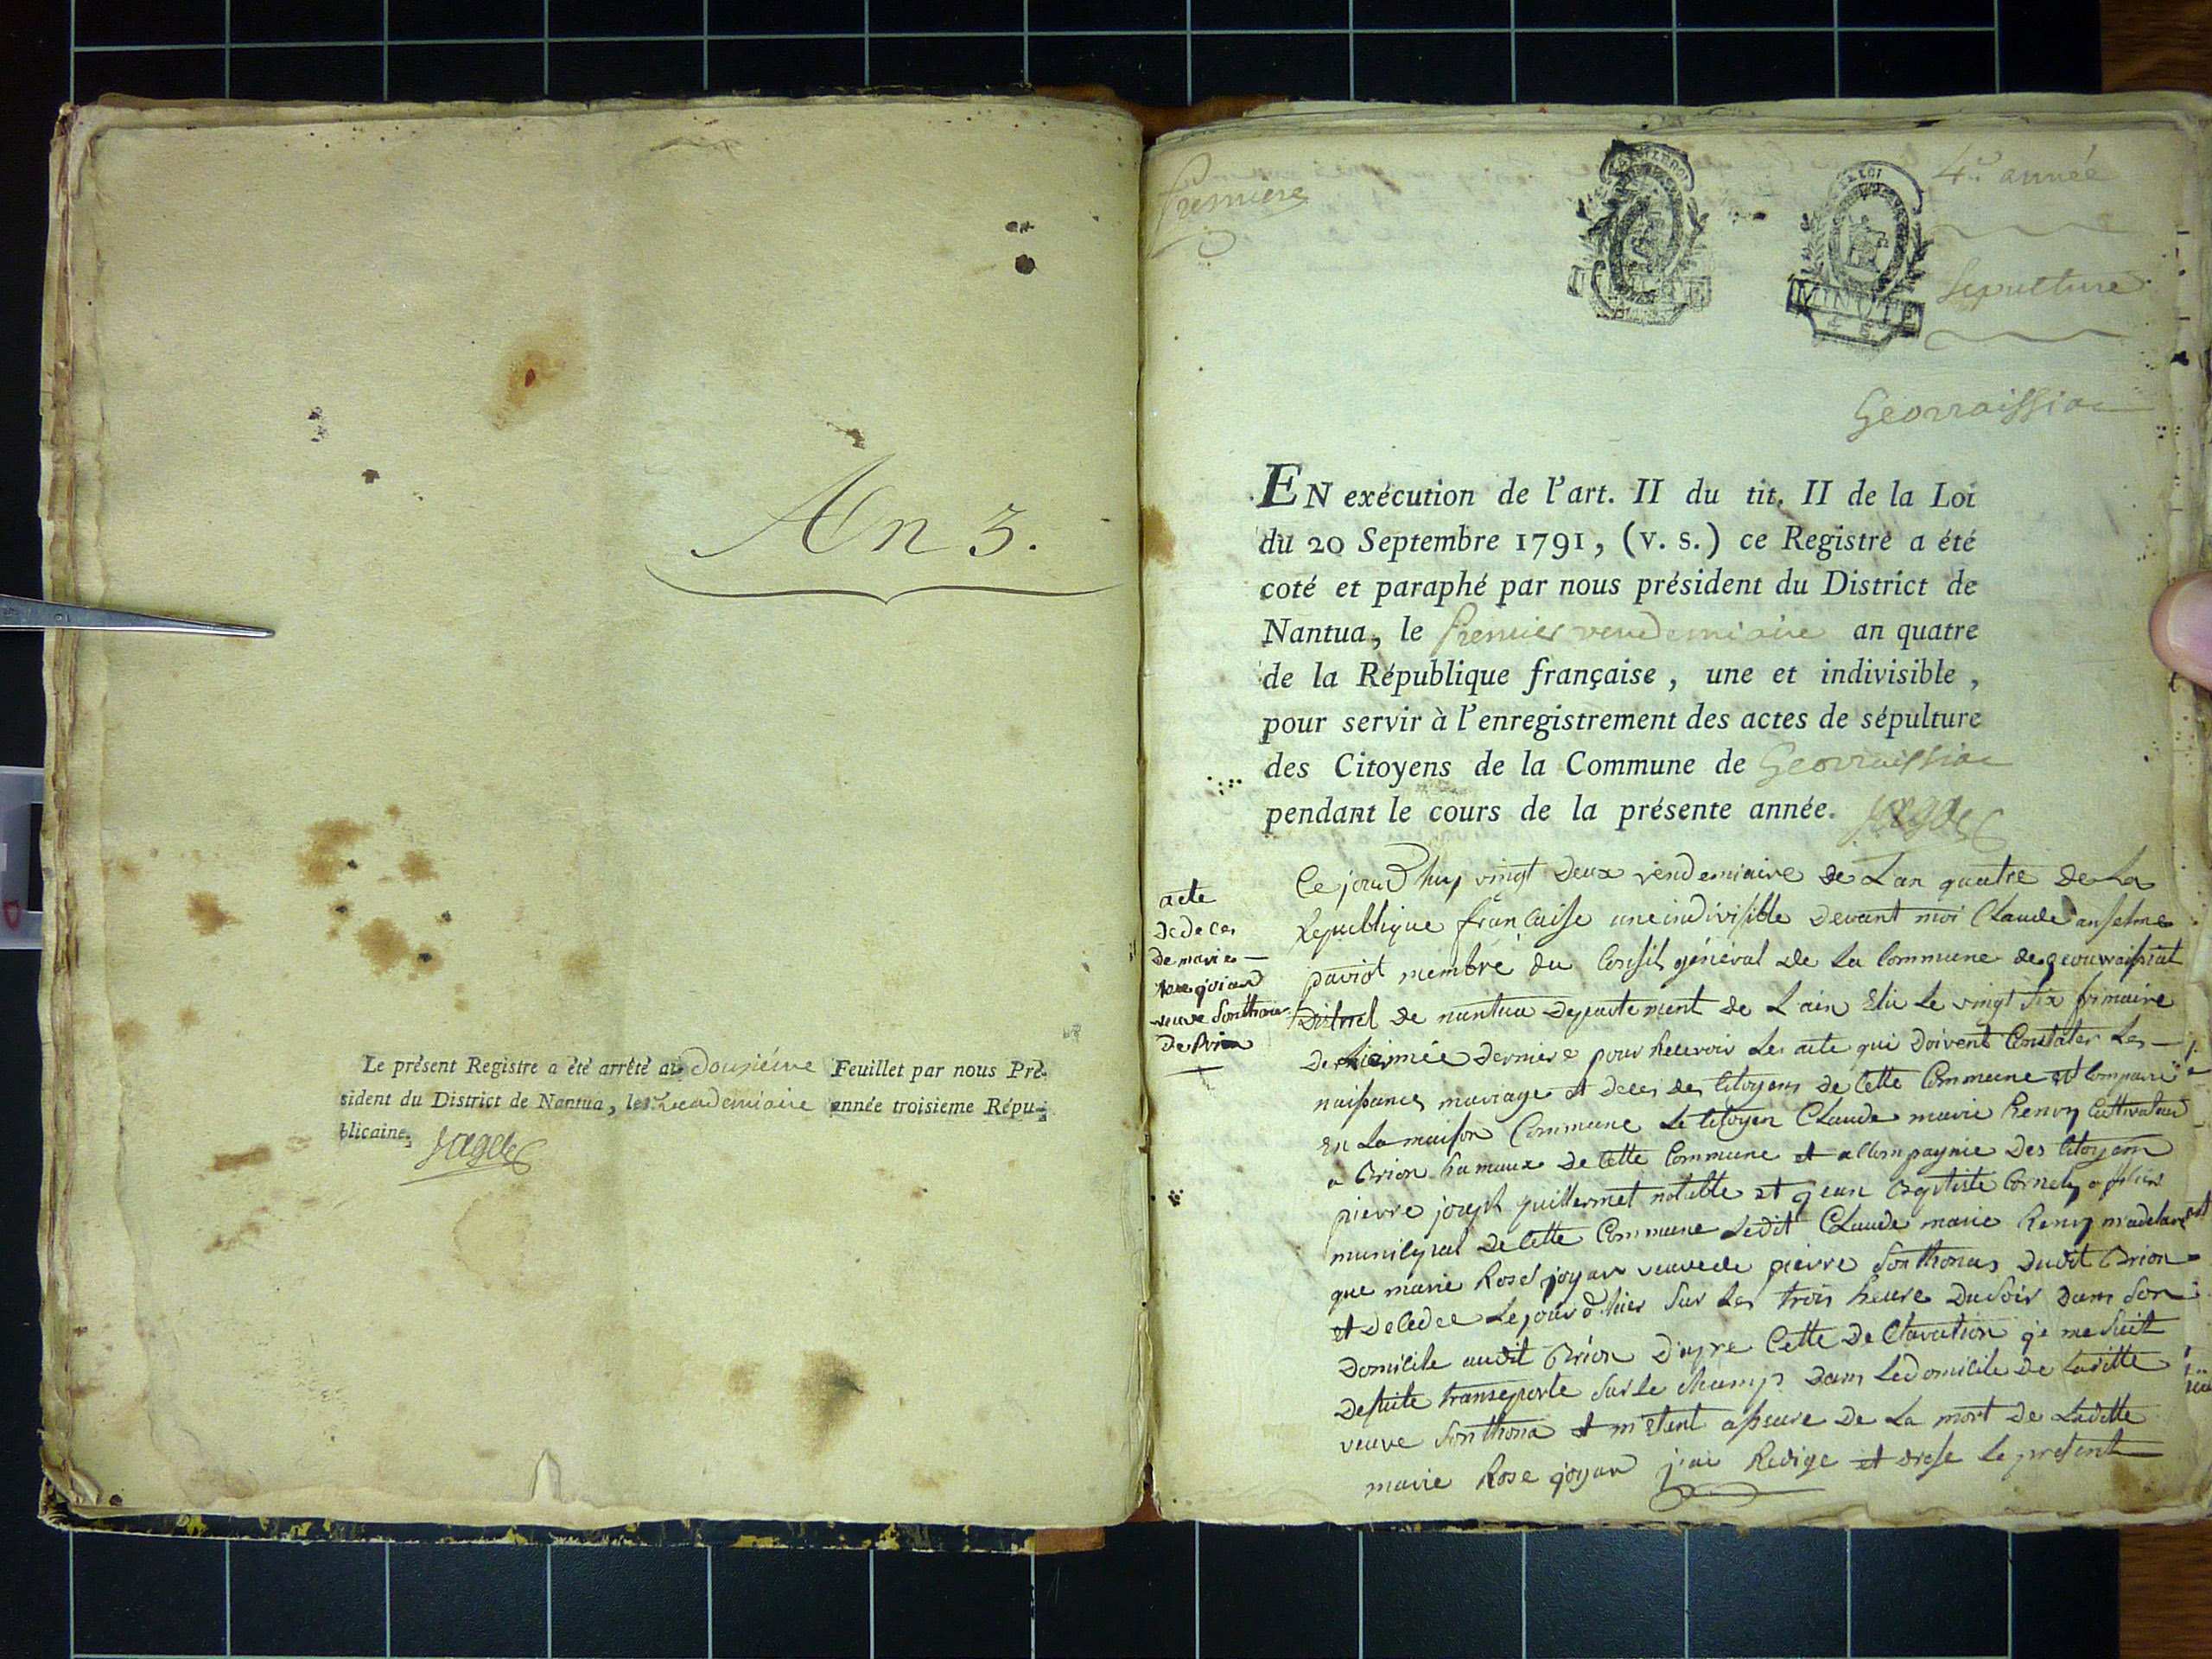 An 3.
Le présent Registre a été arrêté au douzième Feuillet par nous Pré-
sident du District de Nantua, le vendemiaire année troisieme Répu-
blicaine. Jagot
Premiere
4e. année
MINUTE
Sepulture
Geovraissiac
EN exécution de l'art. II du tit. II de la Loi
du 20 Septembre 1791, (v. s.) ce Registre a été
coté et paraphé par nous président du District de
Nantua, le Premier vendemiaire an quatre
de la République française, une et indivisible,
pour servir à l'enregistrement des actes de sépulture
des Citoyens de la Commune de Geovraissiac
pendant le cours de la présente année.
acte
de deces
de marie
rose joiard
veuve Sonthonas
de Brion
Ce jourd'huy vingt deux vendemiaire de L'an quatre de La
Republique francaise une indivisible devant moi Claude anselme
paviot membre du Consil général de La Commune de geouvraissiat
District de nantua departement de L'ain Elu le vingt six frimaire
dernier pour recevoir les acte qui doivent Constater les
naissances mariage et deces des Citoyens de Cette Commune est Comparu
en La maison Commune Le Citoyen Claude marie Renoy Cultivateur
a Brion hamaux de Cette Commune et accompagnie des Citoyens
pierre joseph guillermet notable et jean Baptiste Cornely officier
municipal de Cette Commune Ledit Claude marie Renoy m'a declaré
que marie Rose joyar veuve de pierre Sonthonas dudit Brion
et decedee Le jour d'hier Sur Les trois heure du Soir dans Son
Domicile audit Brion d'apre Cette declaration je me Suit
desuite transeporte Sur le champ dans Ledomicile de Laditte
veuve Sonthona et m'etant assure de La mort de Laditte
marie Rose joyar j'ai Redige et drese Le present